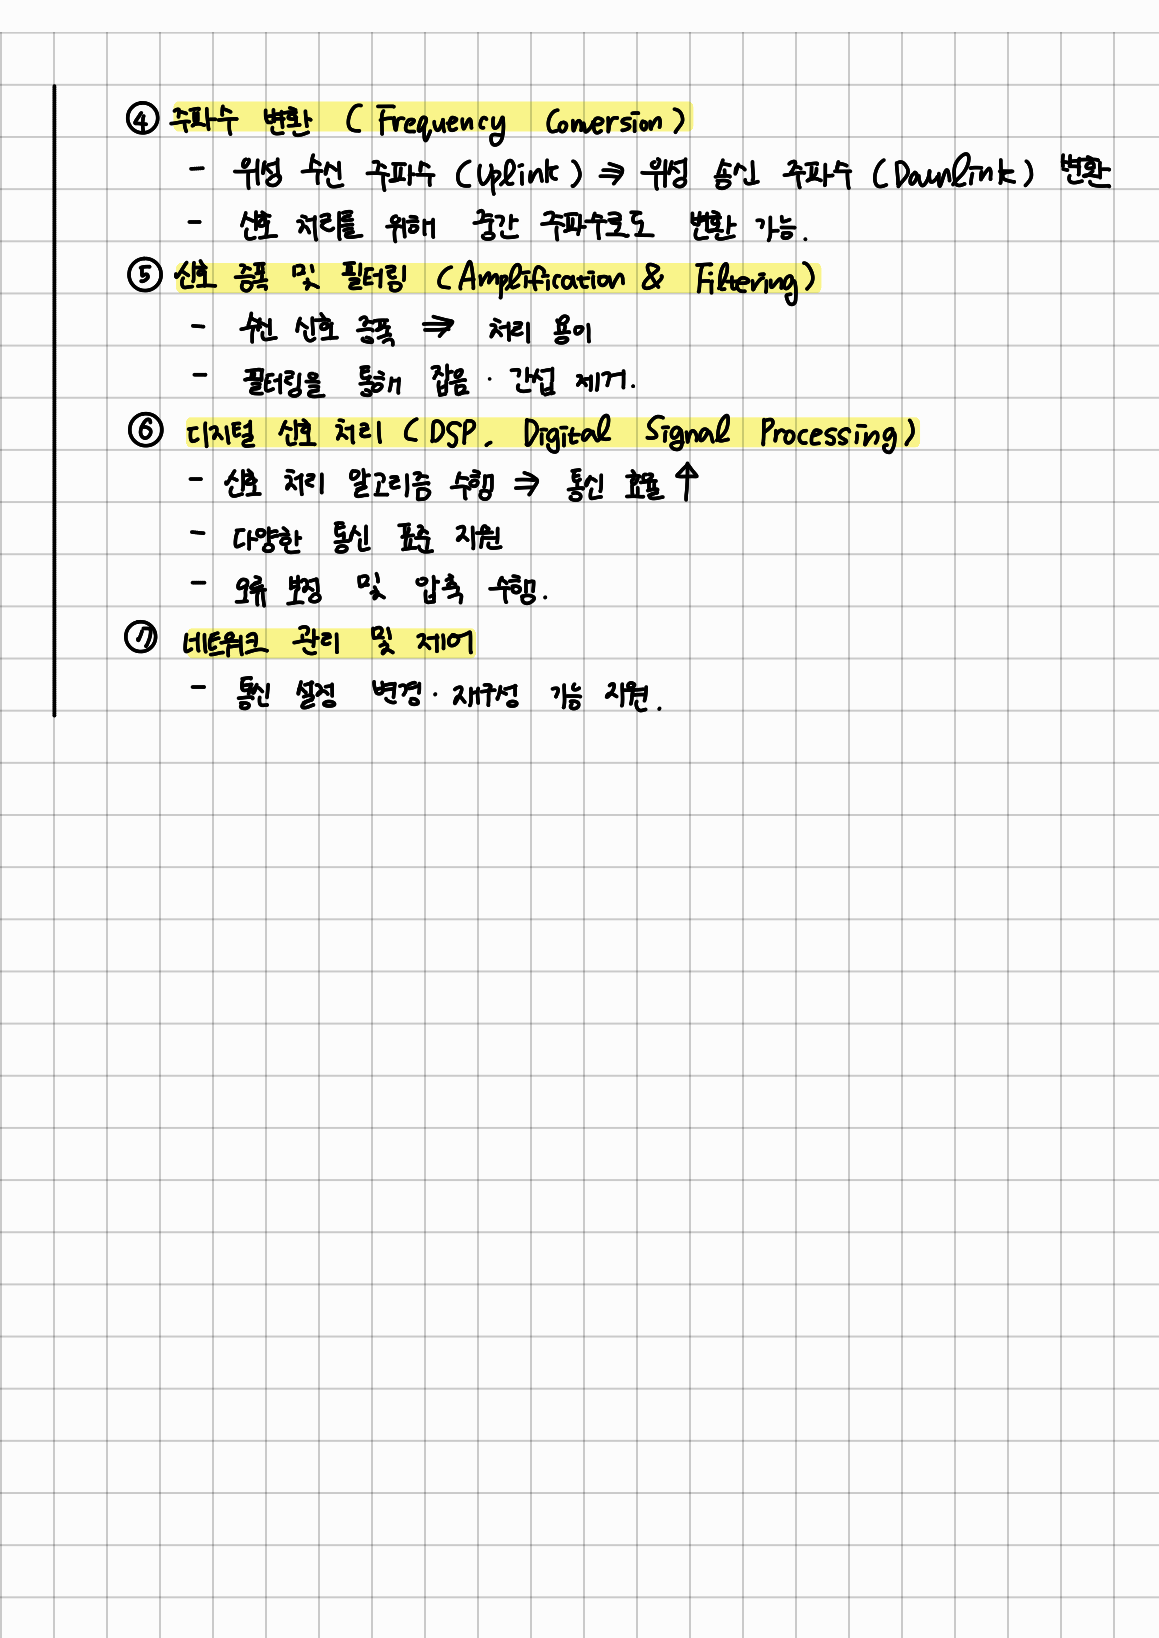 ④ 주파수 변환 ( Frequency Conversion )
- 위성 수신 주파수 ( Uplink ) ⇒ 위성 송신 주파수 ( Downlink ) 변환
- 신호 처리를 위해 중간 주파수로도 변환 가능.
⑤ 신호 증폭 및 필터링 ( Amplification & Filtering )
- 수신 신호 증폭 ⇒ 처리 용이
- 필터링을 통해 잡음 · 간섭 제거.
⑥ 디지털 신호 처리 ( DSP, Digital Signal Processing )
- 신호 처리 알고리즘 수행 ⇒ 통신 효율 ↑
- 다양한 통신 표준 지원
- 오류 보정 및 압축 수행.
⑦ 네트워크 관리 및 제어
- 통신 설정 변경 · 재구성 기능 지원.